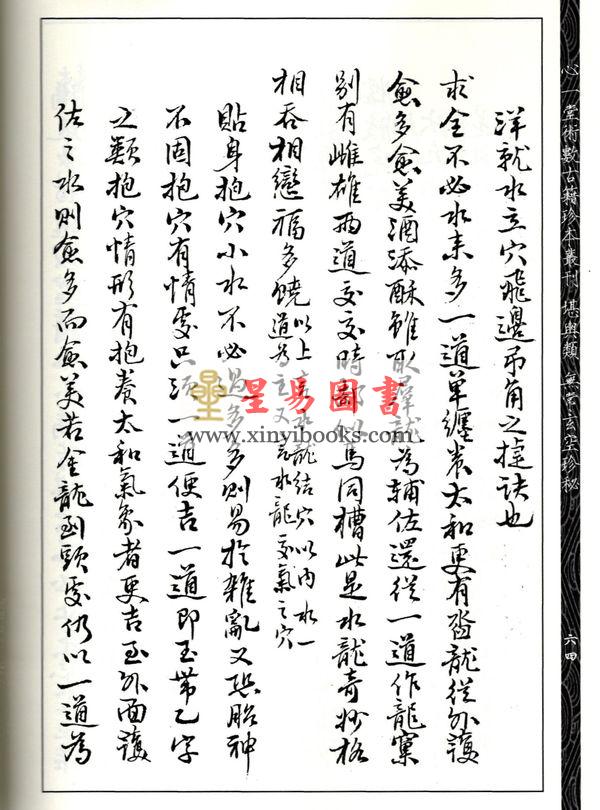 洋就水立穴飛邊吊角之捷訣也
求全不必水来多一道單纏養太和更有踏龍從外護
愈多愈美酒添酥雖取群龍為輔佐還從一道作龍窠
别有雌雄兩道交交時鄰似馬同槽此是水龍奇妙格
相吞相戀福多饒以上言水龍結穴以内水一
道為主又言水龍交氣之穴
貼身抱穴小水不必過多多則易於雜亂又恐胎神
不固抱穴有情處只須一道便吉一道即玉帶乙字
之類抱穴情形有抱養太和氣象者更吉至外面護
佐之水則愈多而愈美若金龍到頭處仍以一道為
心 堂術數古籍珍本叢刊 堪輿類 無常玄空珍秘
六四
星易圖書
www.xinyibooks.com